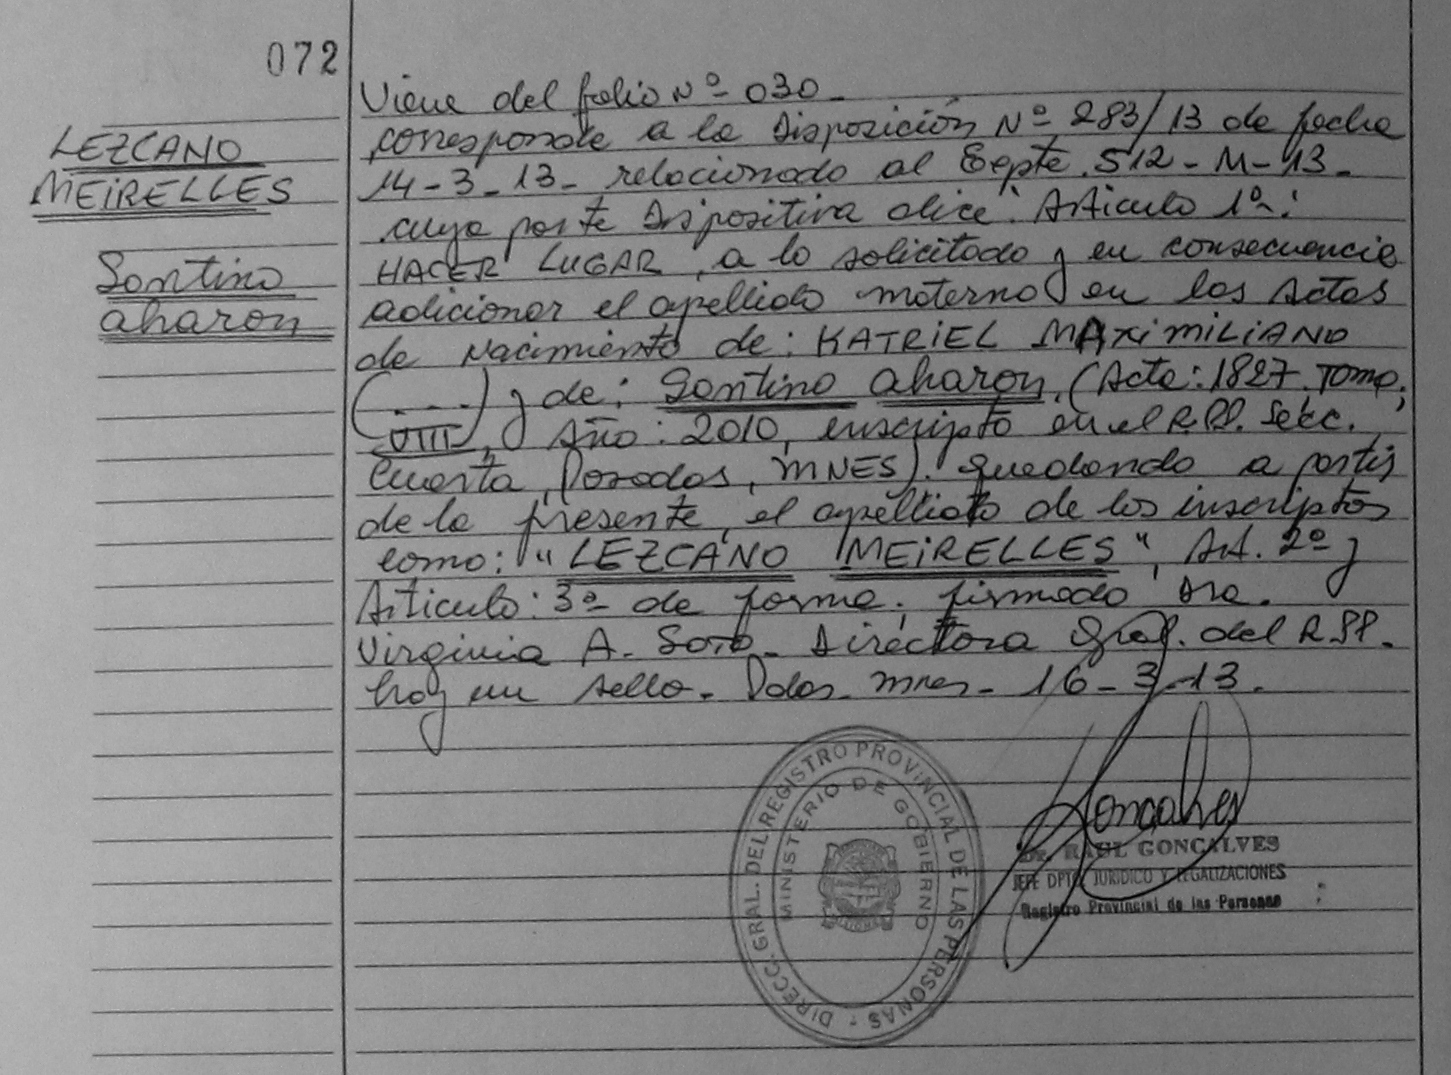 072
LEZCANO
MEIRELLES
Santino
aharon
Viene del folio Nº 030.
corresponde a la Disposición Nº 283/13 de fecha
14-3-13- relacionado al Expte. 512-M-13-
cuya parte Dispositiva dice: Articulo 1º:
HACER LUGAR, a lo solicitado y en consecuencia
adicionar el apellido materno en las Actas
de Nacimiento de: KATRIEL MAXIMILIANO
(....) y de: Santino aharon, (Acta: 1827. Tomo:
VIII, Año: 2010, inscripto en el R.PP. Secc.
Cuarta, Posadas, MNES). quedando a partir
de la presente, el apellido de los inscriptos
como: "LEZCANO MEIRELLES", Art. 2º y
Articulo: 3º de forma. firmado Dra.
Virginia A. Soto. Directora Gral. del R.PP.
hay un sello. Pdas. mnes- 16-3-13.
DIRECC. GRAL. DEL REGISTRO PROVINCIAL DE LAS PERSONAS
MINISTERIO DE GOBIERNO
Goncalves
Dr. RAUL GONCALVES
JEFE DPTO. JURIDICO Y LEGALIZACIONES
Registro Provincial de las Personas